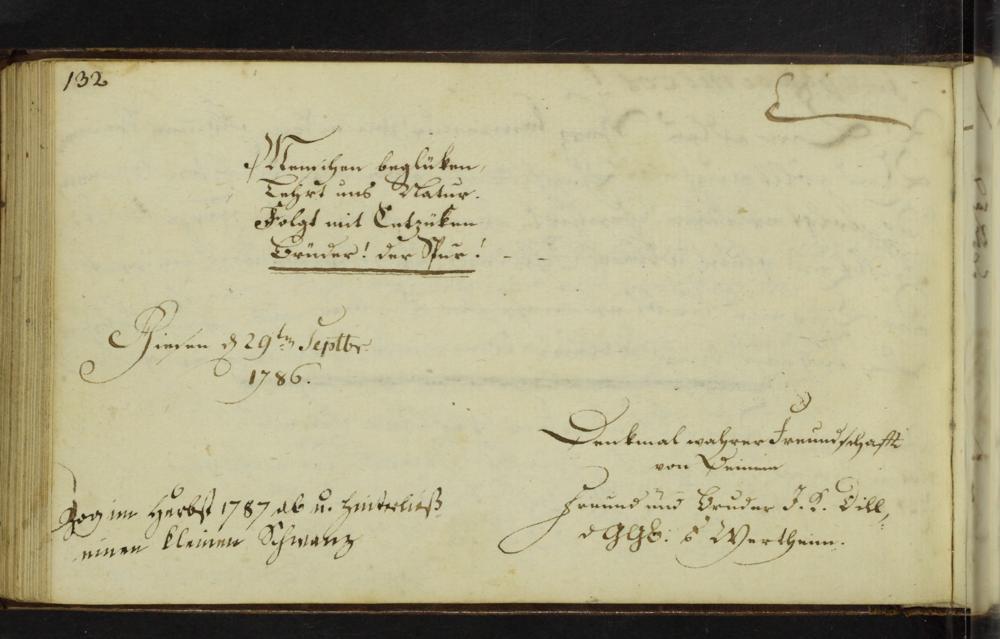 132
Menschen beglüken,
Lehrt uns Natur.
Folgt mit Entzüken
Brüder! der Spur! - -
Giesen d 29ten Septbr.
1786.
Denkmal wahrer Freundschafft
von Deinem
Freund und Bruder J. K. Dill,
d GGb: v Wertheim.
Zog im Herbst 1787 ab u. hinterließ
einen kleinen Schwanz